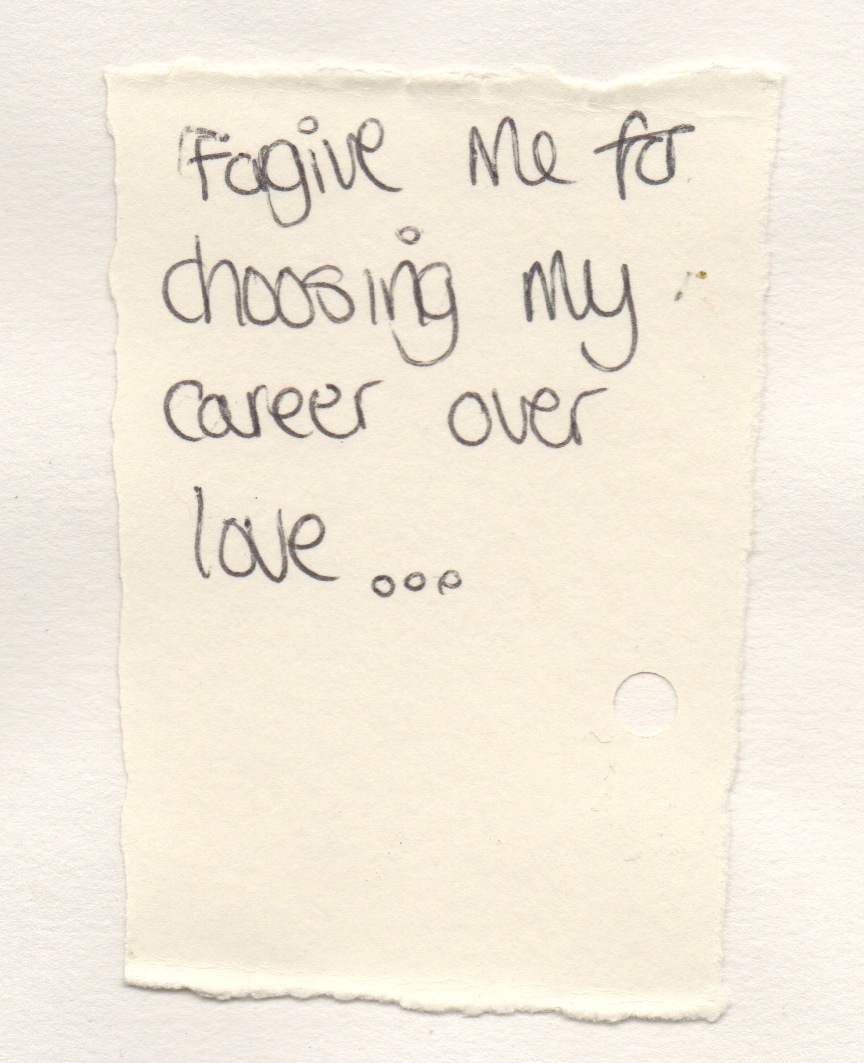 Forgive me for
choosing my
career over
love...